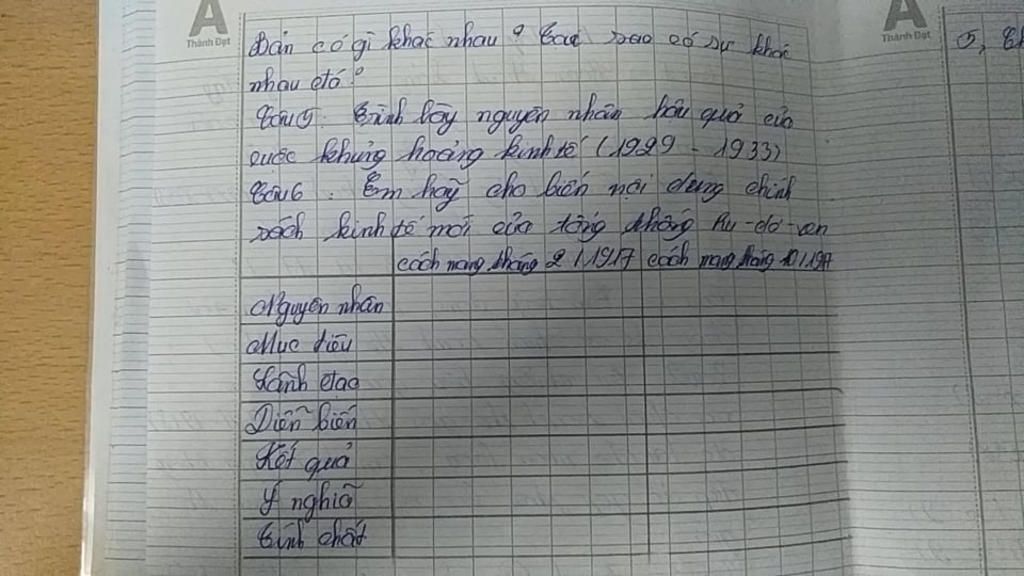 A
Thành Đạt
A
Thành Đạt
Bản có gì khác nhau? Tại sao có sự khác
nhau đó?
Câu 5. Trình bày nguyên nhân hậu quả của
cuộc khủng hoảng kinh tế (1929 - 1933)
Câu 6. Em hãy cho biết nội dung chính
sách kinh tế mới của tổng thống Ru-dơ-ven
cách mạng tháng 2/1917 cách mạng tháng 10/1917
Nguyên nhân
Mục tiêu
Lãnh đạo
Diễn biến
Kết quả
Ý nghĩa
Tính chất
5,